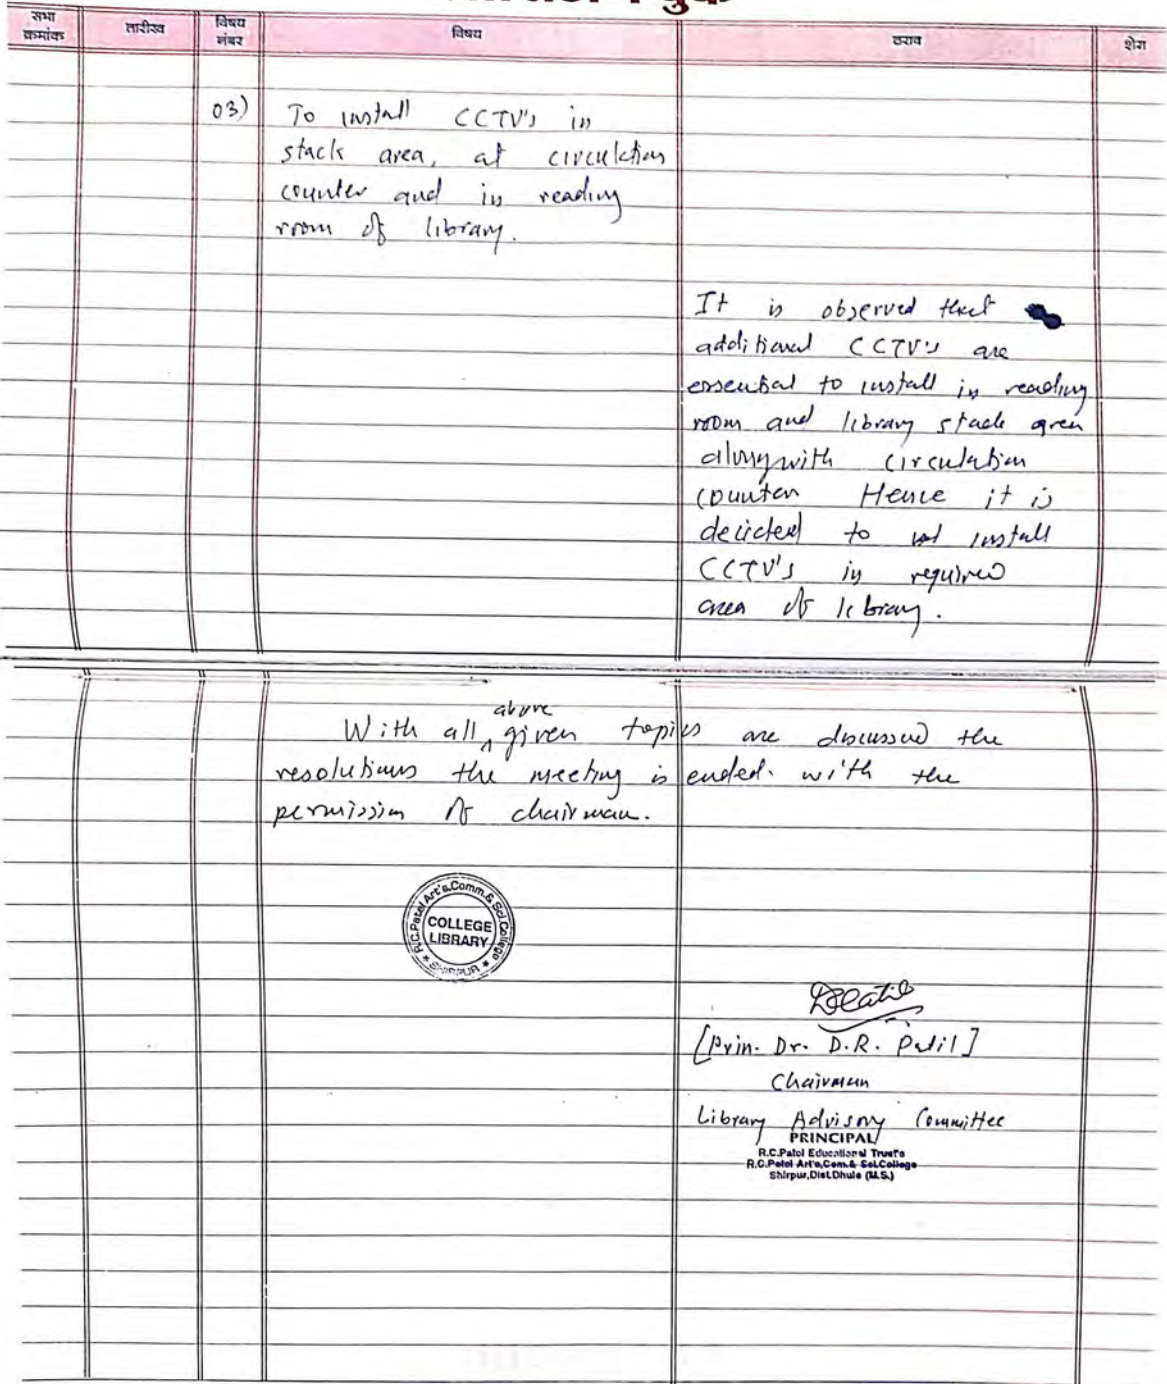 सभा क्रमांक
तारीख
विषय नंबर
विषय
ठराव
शेरा
03)
To install CCTV's in
stack area, at circulation
counter and in reading
room of library.
It is observed that
additional CCTV's are
essential to install in reading
room and library stack area
alongwith circulation
counter Hence it is
decicted to install
CCTV's in required
area of library.
above
With all given topics are discussed the
resolutions the meeting is ended. with the
permission of chairman.
R.C.Patel Art's,Comm.& Sci.College
COLLEGE
LIBRARY
SHIRPUR
[Prin. Dr. D.R. Patil]
Chairman
Library Advisory Committee
PRINCIPAL
R.C.Patel Educational Trust's
R.C.Patel Art's,Com.& Sci.College
Shirpur,Dist.Dhule (M.S.)